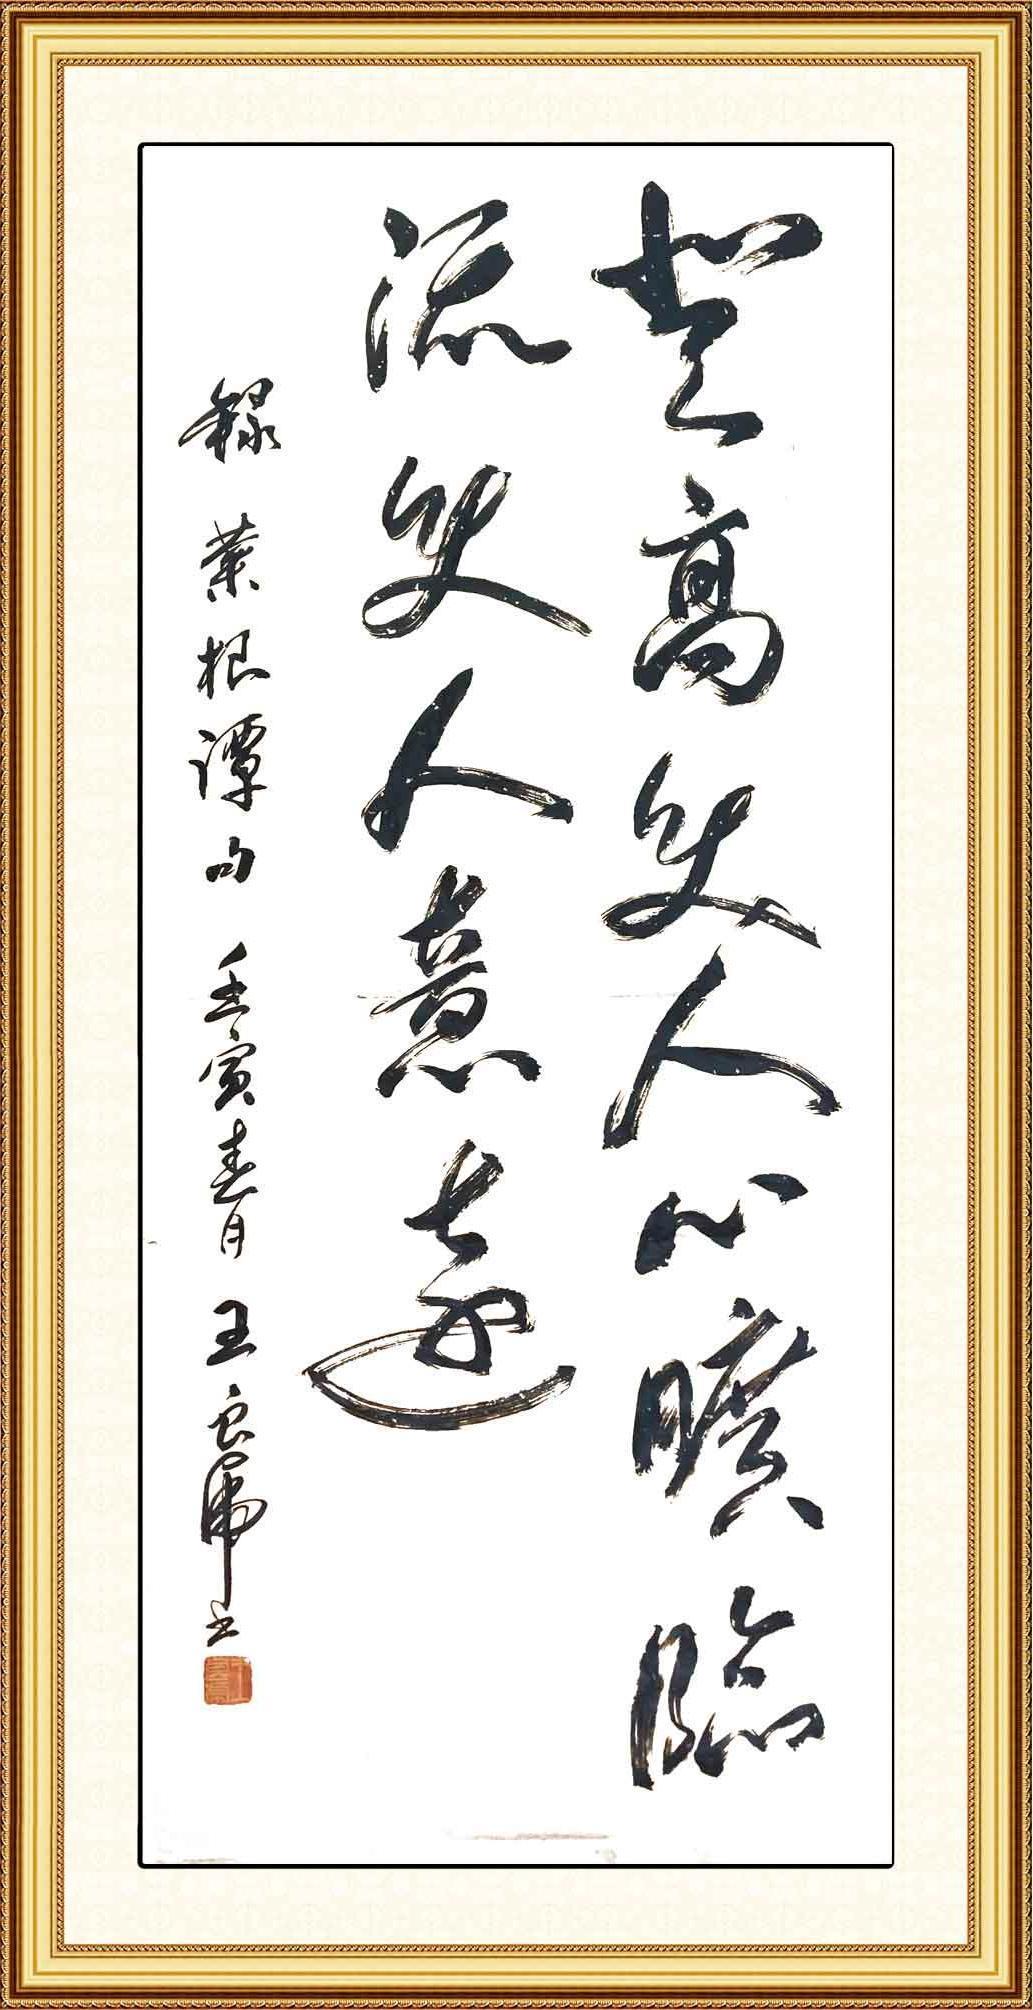 登高使人心曠臨
流使人意遠
錄 菜根譚句 壬寅春月 王良虎书